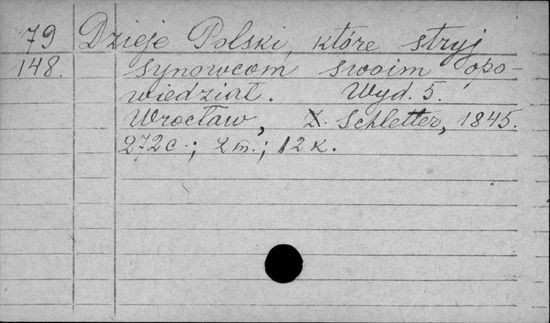 79 Dzieje Polski, które stryj
148. synowcom swoim opo-
wiedział. Wyd. 5.
Wrocław, Z. Schletter, 1845.
272 c.; 2 m.; 12 к.